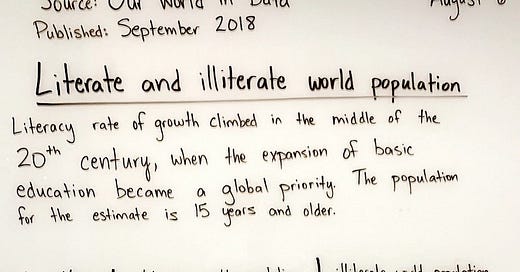 Source: Our World in Data August
Published: September 2018
Literate and illiterate world population
Literacy rate of growth climbed in the middle of the
20th century, when the expansion of basic
education became a global priority. The population
for the estimate is 15 years and older.
illiterate world population